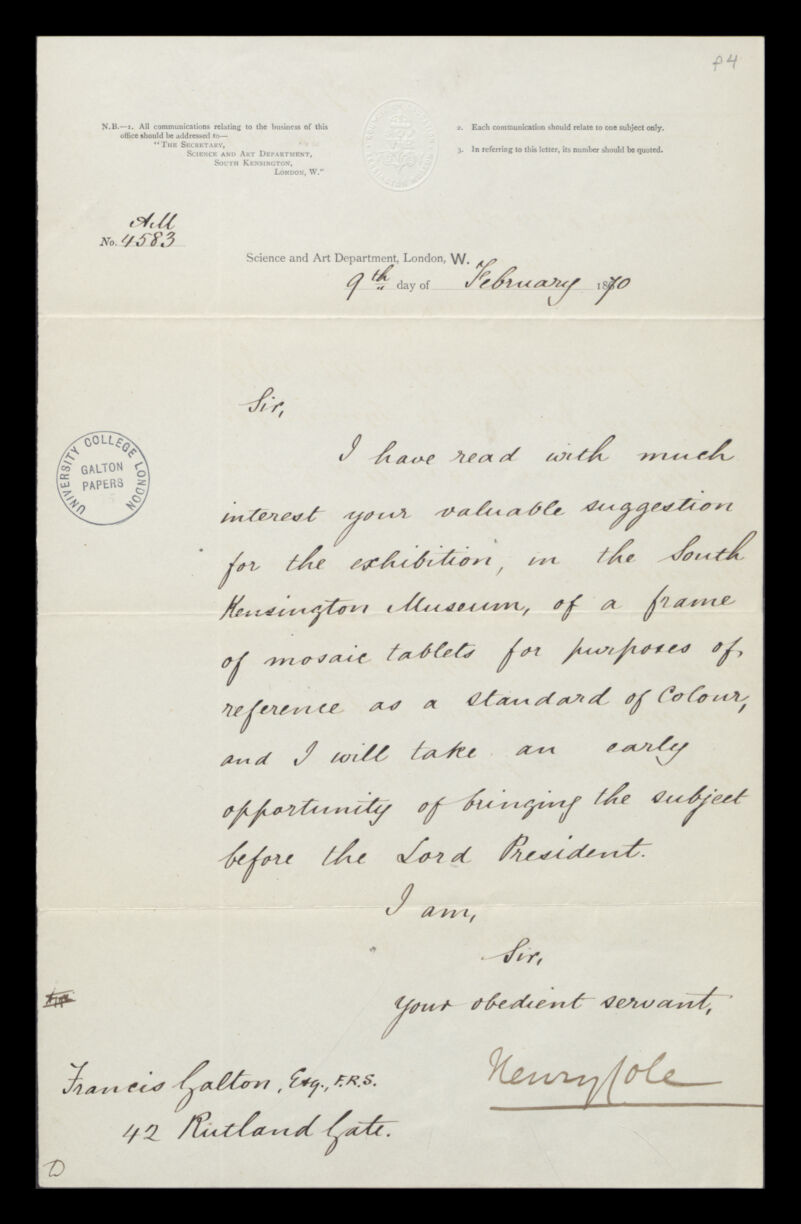 f4
N.B.—1. All communications relating to the business of this
office should be addressed to—
"The Secretary,
Science and Art Department,
South Kensington,
London, W."
2. Each communication should relate to one subject only.
3. In referring to this letter, its number should be quoted.
AM
No. 4583
Science and Art Department, London, W.
9th day of February 1870
Sir,
I have read with much
interest your valuable suggestion
for the exhibition, in the South
Kensington Museum, of a frame
of mosaic tablets for purposes of
reference as a standard of Colour,
and I will take an early
opportunity of bringing the subject
before the Lord President.
I am,
Sir,
Your obedient servant,
Henry Cole
Francis Galton, Esq., F.R.S.
42 Rutland Gate.
UNIVERSITY COLLEGE LONDON
GALTON
PAPERS
D